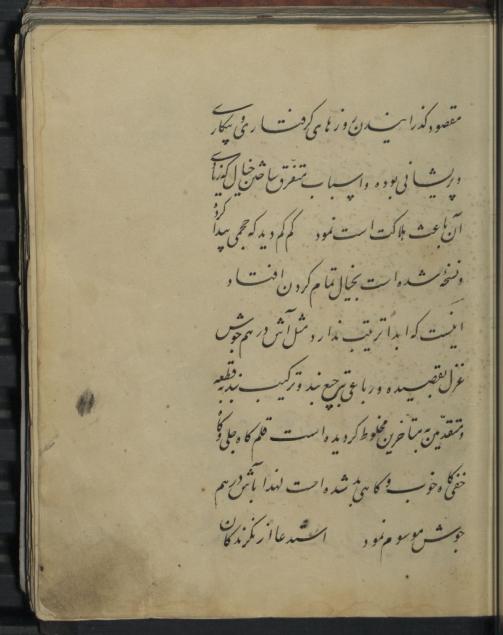 مقصود گذرانیدن روزهای گرفتاری و بیکاری
و پریشانی بوده و اسباب متفرق ساختن خیال
آن باعث هلاکت است نمود کم کم دید که حجمی پیدا کرده
و نسخه شده است بخیال تمام کردن افتاد
اینست که ابدا ترتیب ندارد مثل آش درهم جوش
غزل بقصیده و رباعی بترجیع بند و ترکیب بند بقطعه
و متقدمین به متأخرین مخلوط گردیده است قلم گاه جلی و گاه
خفی گاه خوب و گاهی بد شده است لهذا بآش درهم
جوش موسوم نمود استدعا از نگرندگان